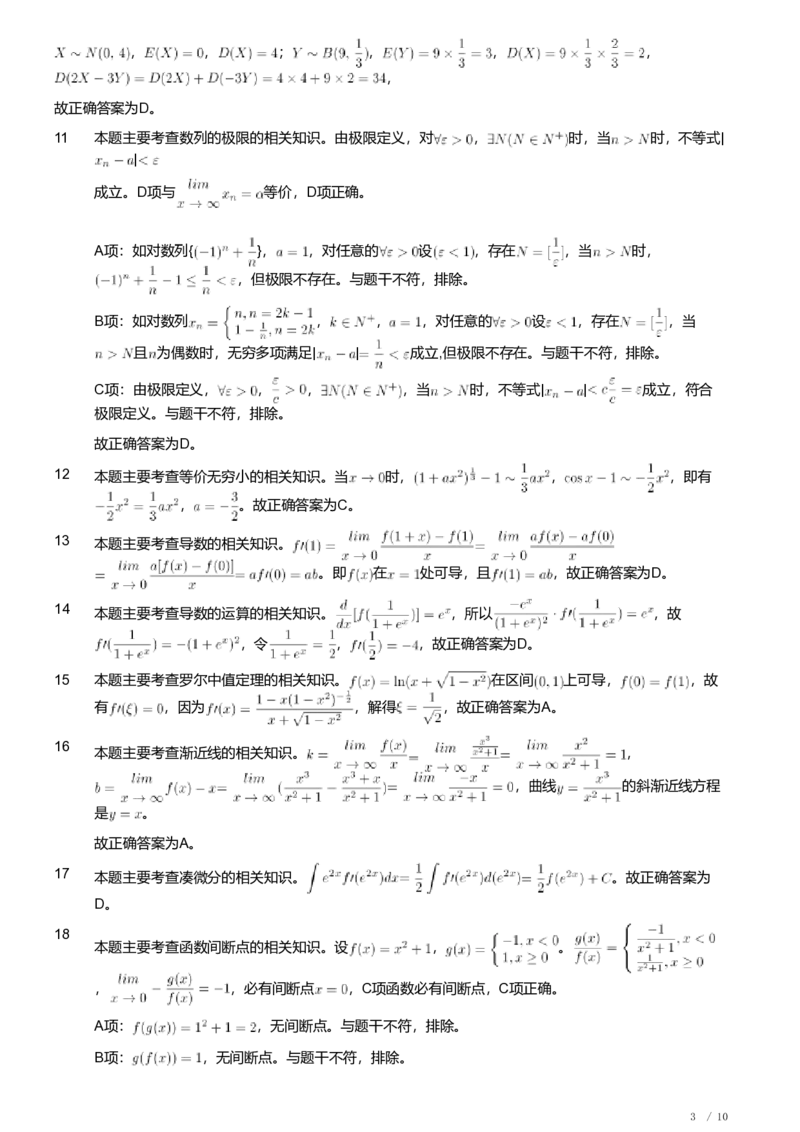 X ∼ N(0, 4)，E(X) = 0，D(X) = 4；Y ∼ B(9, 1/3)，E(Y) = 9 × 1/3 = 3，D(X) = 9 × 1/3 × 2/3 = 2，
D(2X − 3Y) = D(2X) + D(−3Y) = 4 × 4 + 9 × 2 = 34，
故正确答案为D。
11 本题主要考查数列的极限的相关知识。由极限定义，对∀ε > 0，∃N(N ∈ N⁺)时，当n > N时，不等式|
xₙ − a|< ε
成立。D项与 lim x → ∞ xₙ = α等价，D项正确。
A项：如对数列{(−1)ⁿ + 1/n}，a = 1，对任意的∀ε > 0设(ε < 1)，存在N = [1/ε]，当n > N时，
(−1)ⁿ + 1/n − 1 ≤ 1/n < ε，但极限不存在。与题干不符，排除。
B项：如对数列xₙ = { n, n = 2k − 1; 1 − 1/n, n = 2k，k ∈ N⁺，a = 1，对任意的∀ε > 0设ε < 1，存在N = [1/ε]，当
n > N且n为偶数时，无穷多项满足|xₙ − a|= 1/n < ε成立,但极限不存在。与题干不符，排除。
C项：由极限定义，∀ε > 0，ε/c > 0，∃N(N ∈ N⁺)，当n > N时，不等式|xₙ − a|< c ε/c = ε成立，符合
极限定义。与题干不符，排除。
故正确答案为D。
12 本题主要考查等价无穷小的相关知识。当x → 0时，(1 + ax²)^(1/3) − 1 ∼ 1/3 ax²，cos x − 1 ∼ − 1/2 x²，即有
− 1/2 x² = 1/3 ax²，a = − 3/2。故正确答案为C。
13 本题主要考查导数的相关知识。f′(1) = lim x → 0 (f(1 + x) − f(1))/x = lim x → 0 (af(x) − af(0))/x
= lim x → 0 a[f(x) − f(0)]/x = af′(0) = ab。即f(x)在x = 1处可导，且f′(1) = ab，故正确答案为D。
14 本题主要考查导数的运算的相关知识。d/dx [f(1/(1 + eˣ))] = eˣ，所以 −eˣ/(1 + eˣ)² · f′(1/(1 + eˣ)) = eˣ，故
f′(1/(1 + eˣ)) = −(1 + eˣ)²，令 1/(1 + eˣ) = 1/2，f′(1/2) = −4，故正确答案为D。
15 本题主要考查罗尔中值定理的相关知识。f(x) = ln(x + √(1 − x²))在区间(0, 1)上可导，f(0) = f(1)，故
有f′(ξ) = 0，因为f′(x) = (1 − x(1 − x²)^(−1/2))/(x + √(1 − x²))，解得ξ = 1/√2，故正确答案为A。
16 本题主要考查渐近线的相关知识。k = lim x → ∞ f(x)/x = lim x → ∞ (x³/(x²+1))/x = lim x → ∞ x²/(x² + 1) = 1，
b = lim x → ∞ f(x) − x= lim x → ∞ (x³/(x² + 1) − (x³ + x)/(x² + 1))= lim x → ∞ −x/(x² + 1) = 0，曲线y = x³/(x² + 1) 的斜渐近线方程
是y = x。
故正确答案为A。
17 本题主要考查凑微分的相关知识。∫ e²ˣf′(e²ˣ)dx= 1/2 ∫ f′(e²ˣ)d(e²ˣ)= 1/2 f(e²ˣ) + C。故正确答案为
D。
18
本题主要考查函数间断点的相关知识。设f(x) = x² + 1，g(x) = { −1, x < 0; 1, x ≥ 0。g(x)/f(x) = { −1/(x² + 1), x < 0; 1/(x²+1), x ≥ 0
，lim x → 0 − g(x)/f(x) = −1，必有间断点x = 0，C项函数必有间断点，C项正确。
A项：f(g(x)) = 1² + 1 = 2，无间断点。与题干不符，排除。
B项：g(f(x)) = 1，无间断点。与题干不符，排除。
3 / 10